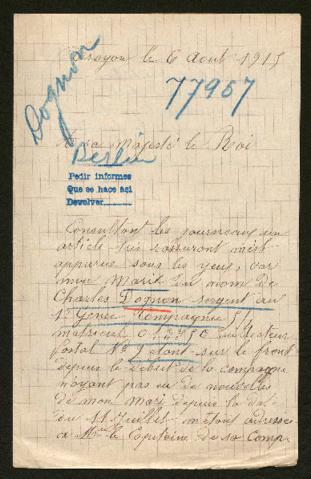 Arayon le 6 Aout 1915
77957
Dognon
Sa Majesté le Roi
Berlin
Pedir informes
Que se hace asi
Devolver
Consultant les journeaux un
article très rassurant m'est
apparue sous les yeux, car
mon Marit du nom de
Charles Dognon sergent au
1r Génie Compagnie 5/1
matricul secteur
postal No étant sur le front
depuis le début de la compagne
noyant pas eu de nouvelles
de mon mari depuis la date
du 11 Juillet métant adressé
a Mr le Capitaine de sa Comp